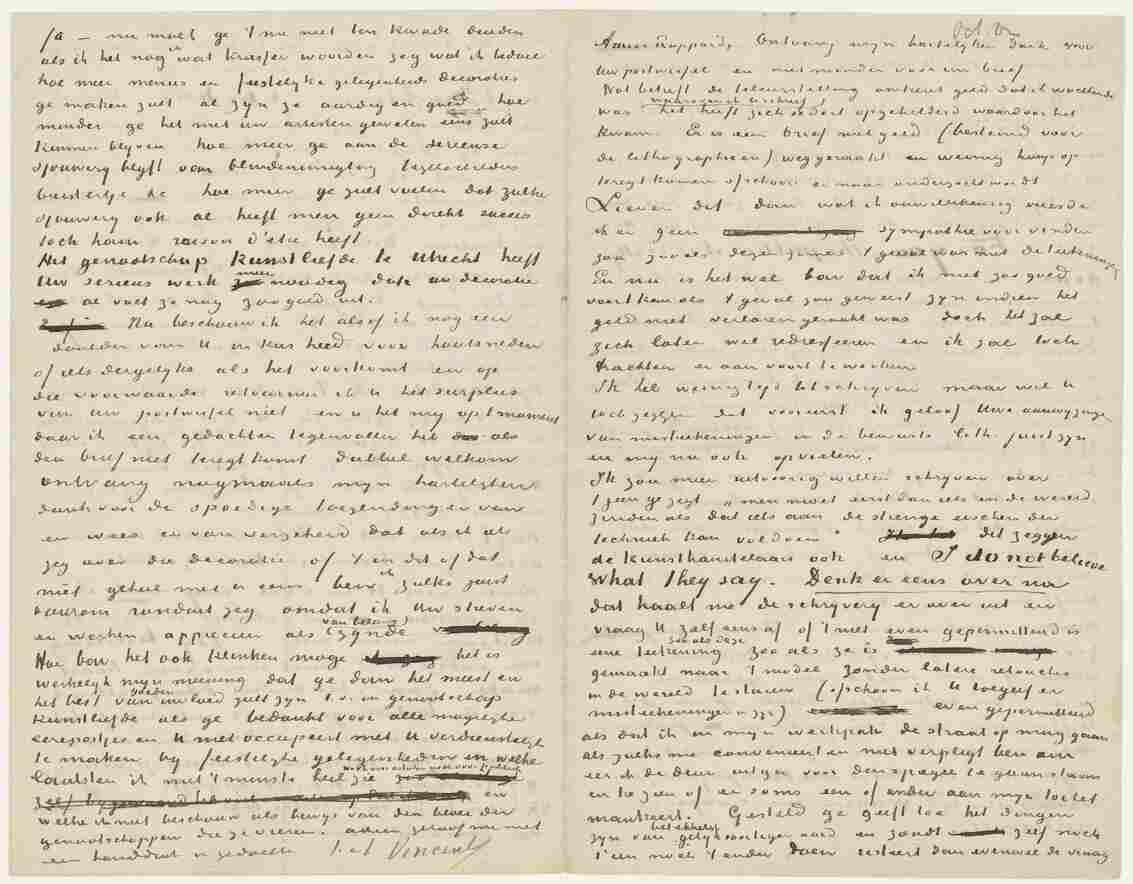 Ja – nu moet ge 't me niet ten kwade duiden
als ik het nog in wat krasser woorden zeg wat ik bedoel
hoe meer menus en feestelyke gelegenheids decoraties
ge maken zult al zyn ze aardig en goed hoe
minder ge het met uw artisten geweten eens zult
kunnen blyven hoe meer ge aan de serieuse
blyft van blindeninrigting
besteltje &c hoe meer ge zult voelen dat zulke
ook al heeft men geen direkt succes
toch haar raison d'etre heeft.
Het genootschap Kunstliefde te Utrecht heeft
Uw serieus werk meer noodig dan uw decoratie
al valt ze nog zoo goed uit.
Nu beschouw ik het alsof ik nog een
daalder van U in kas heb voor houtsneden
of iets dergelyks als het voorkomt en op
die voorwaarde retourneer ik U het surplus
van uw postwissel niet en is het my op 't moment
daar ik een gedachten tegenvaller heb als
den brief niet teregtkomt dubbel welkom
ontvang nogmaals myn hartelyken
dank voor de spoedige toezending er van
en wees er van verzekerd dat als ik als
zeg over die decoratie of 't en dit of dat
niet geheel met U eens ben ik zulks juist
daarom ronduit zeg omdat ik Uw streven
en werken apprecieer als van belang zynde
Hoe bar het ook klinken moge het is
werkelyk myn meening dat ge dan het meest en
het best van invloed zult zyn t.o. van genootschap
Kunstliefde als ge bedankt voor alle mogelyke
eerepostjes en U niet occupeert met U verdienstelyk
te maken by feestelyke gelegenheden in welke
laatsten ik niet 't minste heil zie
en
welke ik niet beschouw als bewys van den bloei der
genootschappen die ze vieren. adieu geloof me met
een handdruk in gedachten t. à t. Vincent
Oct. 82
Amice Rappard, Ontvang myn hartelyken dank voor
Uw postwissel en niet minder voor uw brief
Wat betreft de teleurstelling omtrent geld dat ik wachtende
was waarvan ik U schreef, het heeft zich sedert opgehelderd waardoor het
kwam. Er is een brief met geld (bestemd voor
de lithographieen) weggeraakt en weinig hoop op
teregt komen ofschoon er naar onderzocht wordt
Liever dit dan wat ik onwillekeurig vreesde
ik er geen sympathie voor vinden
zou zooals degeen eerst 't geval was met de teekeningen
En nu is het wel bar dat ik niet zoo goed
voort kan als 't geval zou geweest zyn indien het
geld niet verloren geraakt was doch het zal
zich later wel redresseeren en ik zal toch
trachten er aan voort te werken
Ik heb weinig tyd tot schryven maar wil U
toch zeggen dat vooreerst ik geloof Uwe aanwyzingen
van misteekeningen in de bewuste lith. juist zyn
en my nu ook opvielen.
Ik zou meer uitvoerig willen schryven over
't geen ge zegt „men moet eerst dan iets in de wereld
zenden als dat iets aan de strenge eischen der
techniek kan voldoen" dit zeggen
de kunsthandelaars ook en I do not believe
what they say. Denk er eens over na
dat haalt me de schryvery er over uit en
vraag U zelf eens af of 't niet even gepermitteerd is
eene teekening zooals deze zoo als ze is
gemaakt naar 't model zonder latere retouches
in de wereld te sturen (ofschoon ik U toegeef er
misteekeningen in zyn) even gepermitteerd
als dat ik in myn werkpak de straat op mag gaan
als zulks me convenieert en niet verpligt ben aan
eer ik de deur uitga voor den spiegel te gaan staan
en te zien of er soms een of ander aan myn toilet
mankeert. Gesteld ge geeft toe het dingen
zyn van betrekkelyk gelyksoortigen aard en zondt zelf noch
't een noch 't ander doen resteert dan evenwel de vraag